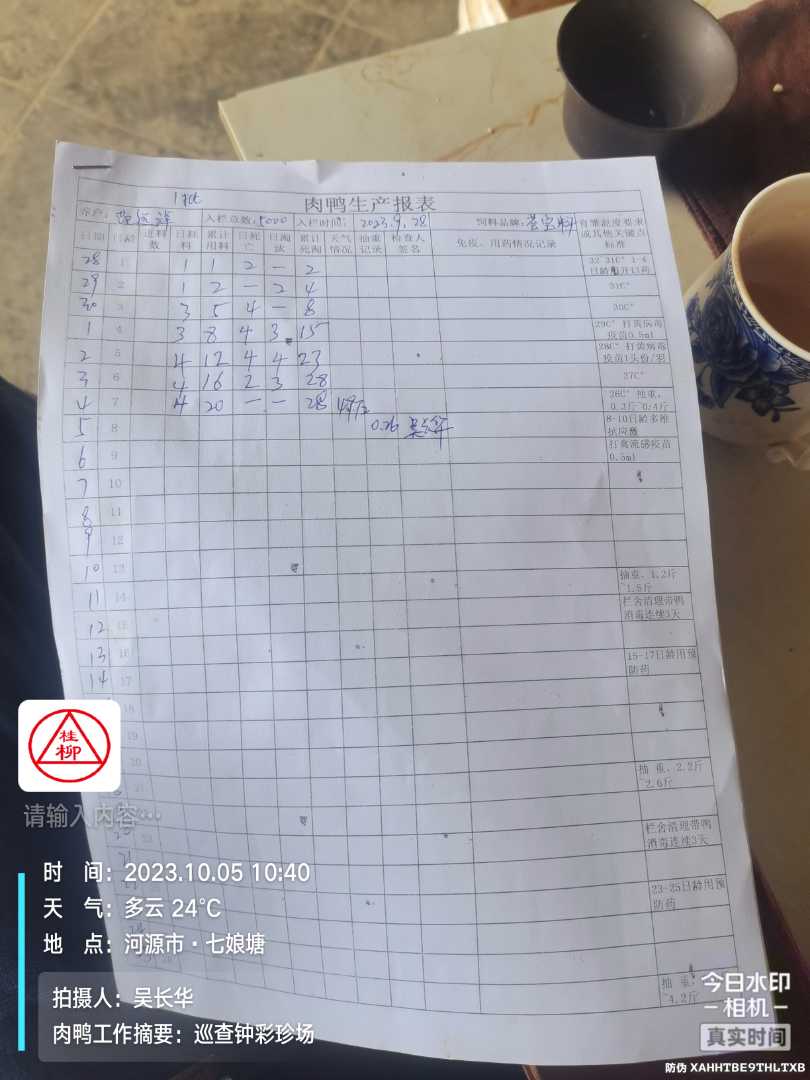 肉鸭生产报表
养户: 入栏总数:5000 入栏时间: 2023.9.28 饲料品牌: 育雏温度要求或其他关键点标准
日期 日龄 进料数 日耗料 累计用料 日死亡 日淘汰 累计死淘 天气情况 抽重记录 检查人签名 免疫、用药情况记录
28 1 1 1 2 一 2 32-31C° 1-4日龄用开口药
29 2 1 2 一 2 4 31C°
30 3 3 5 4 一 8 30C°
1 4 3 8 4 3 15 29C° 打黄病毒疫苗0.5ml
2 5 4 12 4 4 23 28C° 打黄病毒疫苗1头份/羽
3 6 4 16 2 3 28 27C°
4 7 4 20 一 一 28 晴 26C° 抽重,0.2斤-0.4斤
5 8 0.36 8-10日龄多维抗应激
6 9 打禽流感疫苗0.5ml
7 10
8 11
9 12
10 13 抽重,1.2斤~1.5斤
11 14 栏舍清理带鸭消毒连续3天
12 15
13 16 15-17日龄用预防药
14 17
18
19
20 抽重,2.2斤~2.6斤
21
栏舍清理带鸭消毒连续3天
23-25日龄用预防药
抽重,~4.2斤
桂柳
请输入内容…
时 间:2023.10.05 10:40
天 气:多云 24℃
地 点:河源市·七娘塘
拍摄人:吴长华
肉鸭工作摘要:巡查钟彩珍场
今日水印
-相机-
真实时间
防伪 XAHHTBE9THLTXB